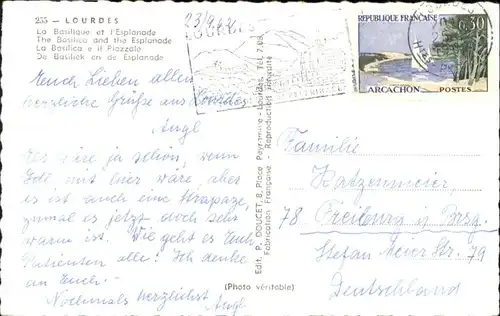 255 — LOURDES
La Basilique et l'Esplanade
The Basilica and the Esplanade
La Basilica e il Piazzale
De Basiliek en de Esplanade
REPUBLIQUE FRANÇAISE
0,30
ARCACHON POSTES
Euch Lieben allen
herzliche Grüße aus Lourdes
Angl
Es wäre ja schön, wenn
Gott mit hier wäre, aber
es ist auch eine Strapaze,
zumal es jetzt doch sehr
warm ist. Wie geht es Euch
Patienten alle? Ich denke
an Euch.
Nochmals herzlichst
Angl
Edit. P. DOUCET, 8, Place Peyramale - Lourdes. Tél. 7.08
Fabrication Française - Reproduction interdite
(Photo véritable)
Familie
Katzenmeier,
78 Freiburg i/ Brsg.
Stefan Meier Str. 79
Deutschland